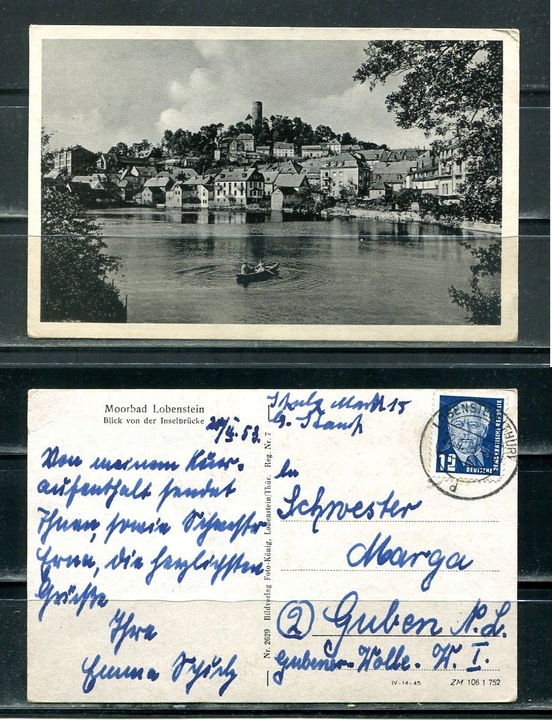 Moorbad Lobenstein
Blick von der Inselbrücke
Von meinem Kur-
aufenthalt sendet
Ihnen, sowie Schwester
Erna, die herzlichsten
Grüsse
Ihre
Emma Schulz
Nr. 2629 Bildverlag Foto-König, Lobenstein/Thür. Reg. Nr. 7
Markt 15
12
DEUTSCHE
DEMOKRATISCHE REPUBLIK
An
Schwester
Marga
2 Guben N. L.
Gubener-Wolle-W. I.
IV-14-45 ZM 106 1 752